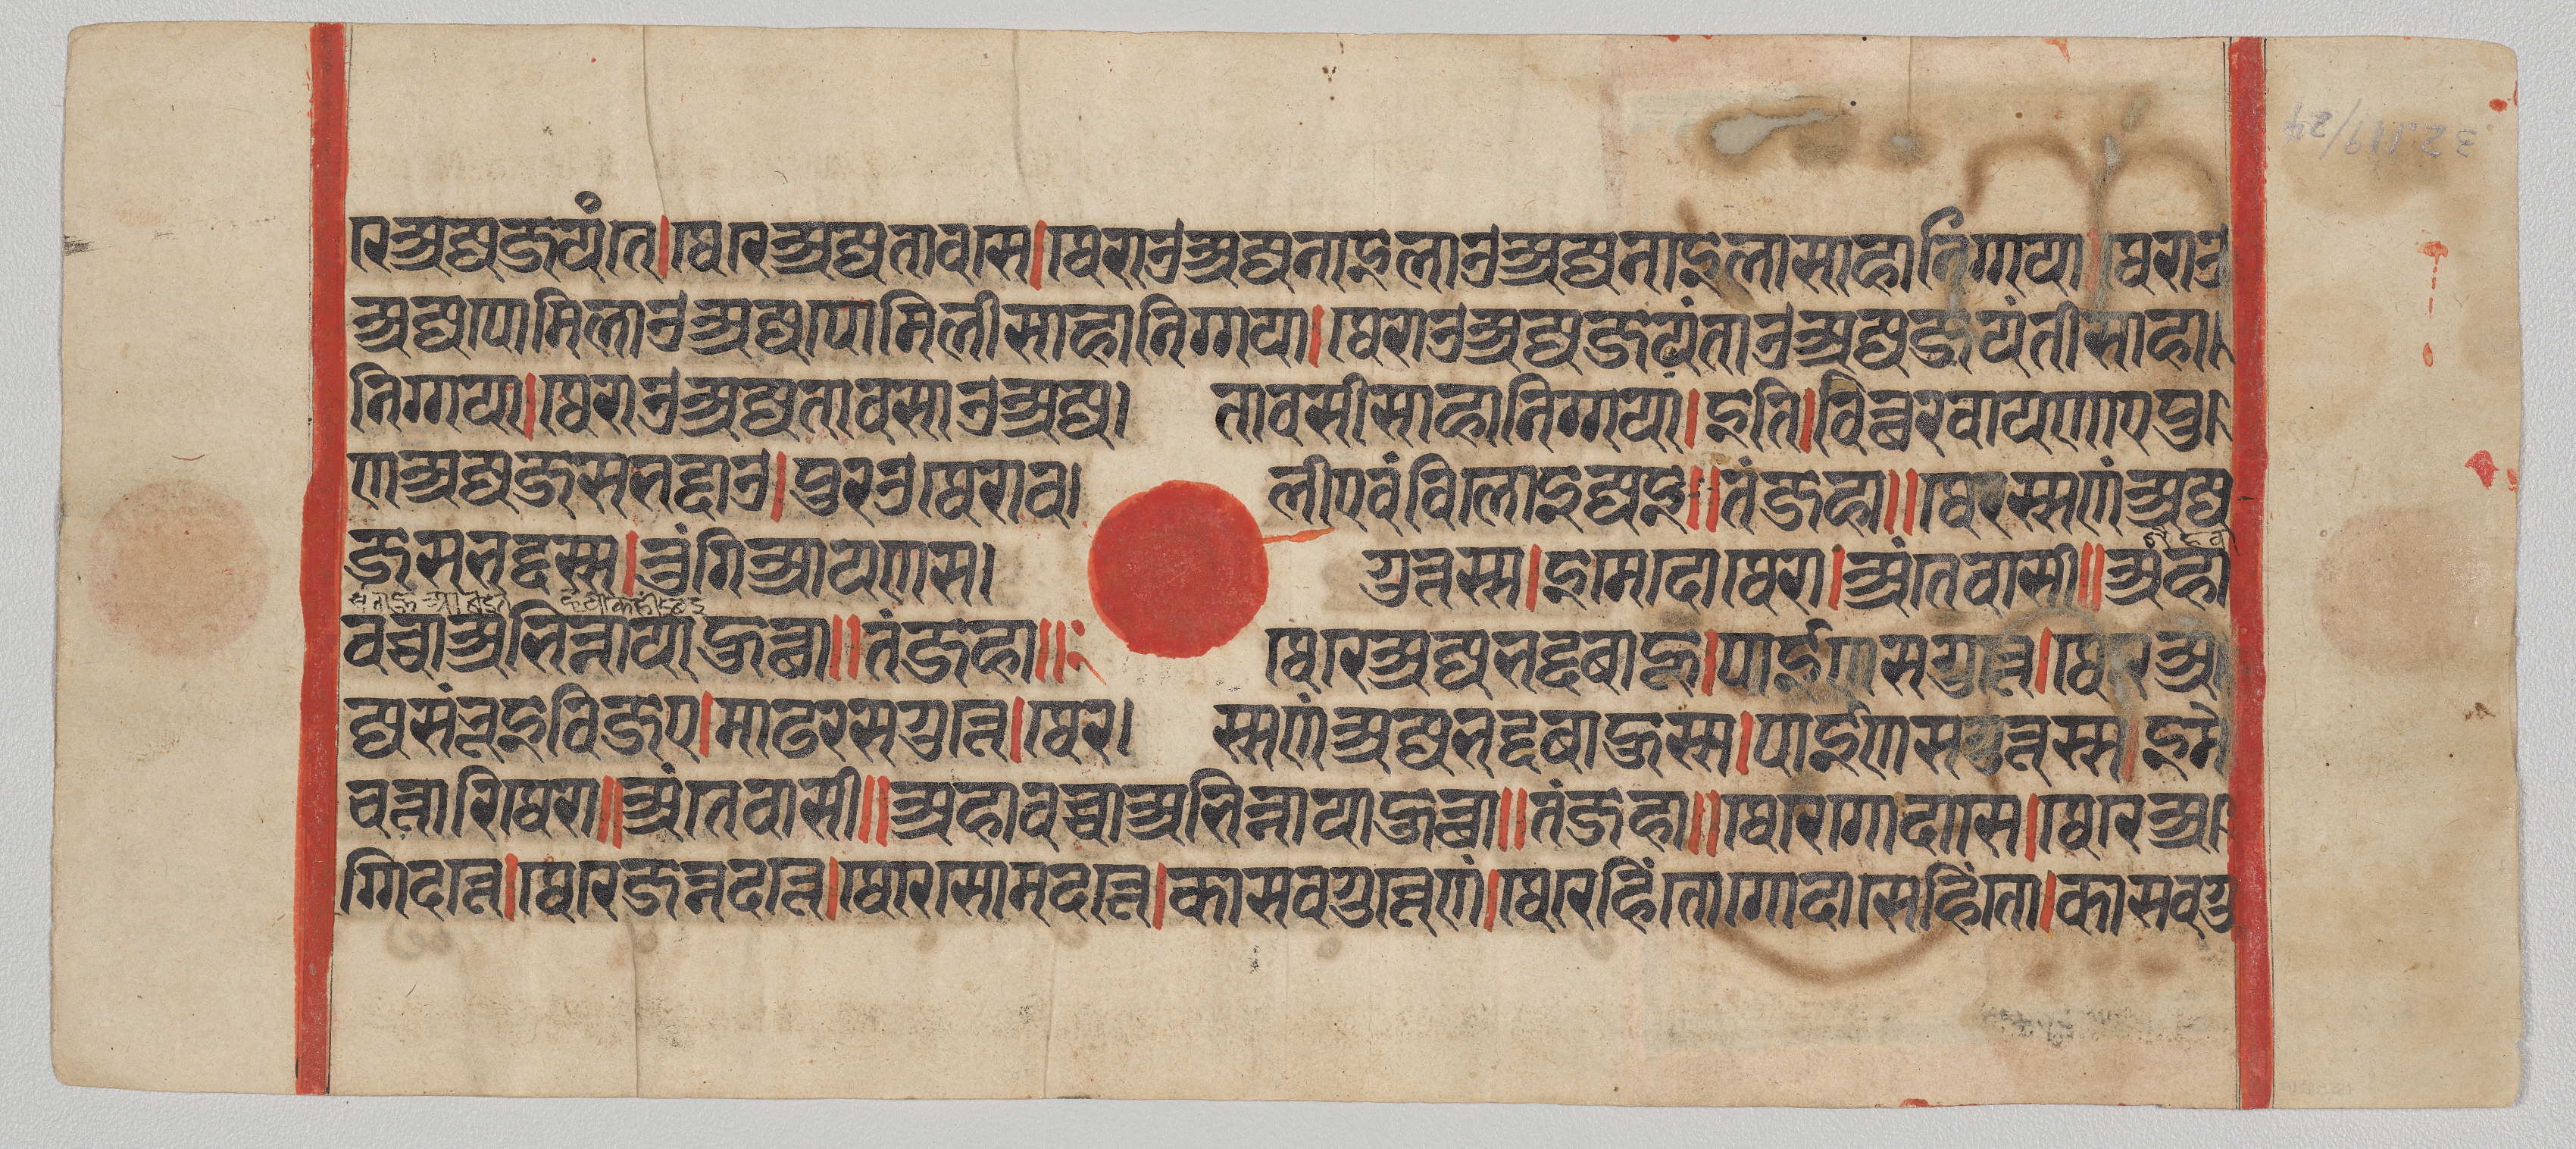 32.119/24
रे अज्जजयंते। थेरे अज्जतावसे। थेराउ अज्जनाइलाउ अज्जनाइला साहा निग्गया। थेराउ
अज्जपोमिलाउ अज्जपोमिली साहा निग्गया। थेराउ अज्जजयंताउ अज्जजयंती साहा
निग्गया। थेराउ अज्जतावसाउ अज्ज तावसी साहा निग्गया। इति। वित्थरवायणाए पु
ण अज्जजसभद्दाउ। पुरउ थेराव लीएवं विलोइज्जइ॥ तं जहा॥ थेरस्सणं अज्ज
जसभद्दस्स। तुंगिआयणस गुत्तस्स। इमे दो थेरा। अंतेवासी॥ अहा
वच्चा अभिन्नाया हुत्था॥ तं जहा॥ थेरे अज्जभद्दबाहू। पाईणसगुत्ते। थेरे अ
ज्जसंभूइविजए। माढरसगुत्ते। थेर स्सणं अज्जभद्दबाहुस्स। पाईणसगुत्तस्स। इमे
चत्तारि थेरा॥ अंतेवासी॥ अहावच्चा अभिन्नाया हुत्था॥ तं जहा॥ थेरे गोदासे। थेरे अ
ग्गिदत्ते। थेरे जन्नदत्ते। थेरे सोमदत्ते। कासवगुत्तेणं। थेरेहिंतो गोदासेहिंतो। कासवगु